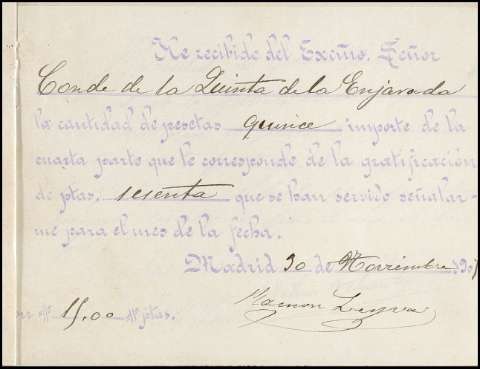 He recibido del Excmo. Señor
Conde de la Quinta de la Enjarada
la cantidad de pesetas quince importe de la
cuarta parte que le corresponde de la gratificación
de ptas. sesenta que se han servido señalar-
me para el mes de la fecha.
Madrid 30 de Noviembre
15,00 ptas.
Ramon Leyva